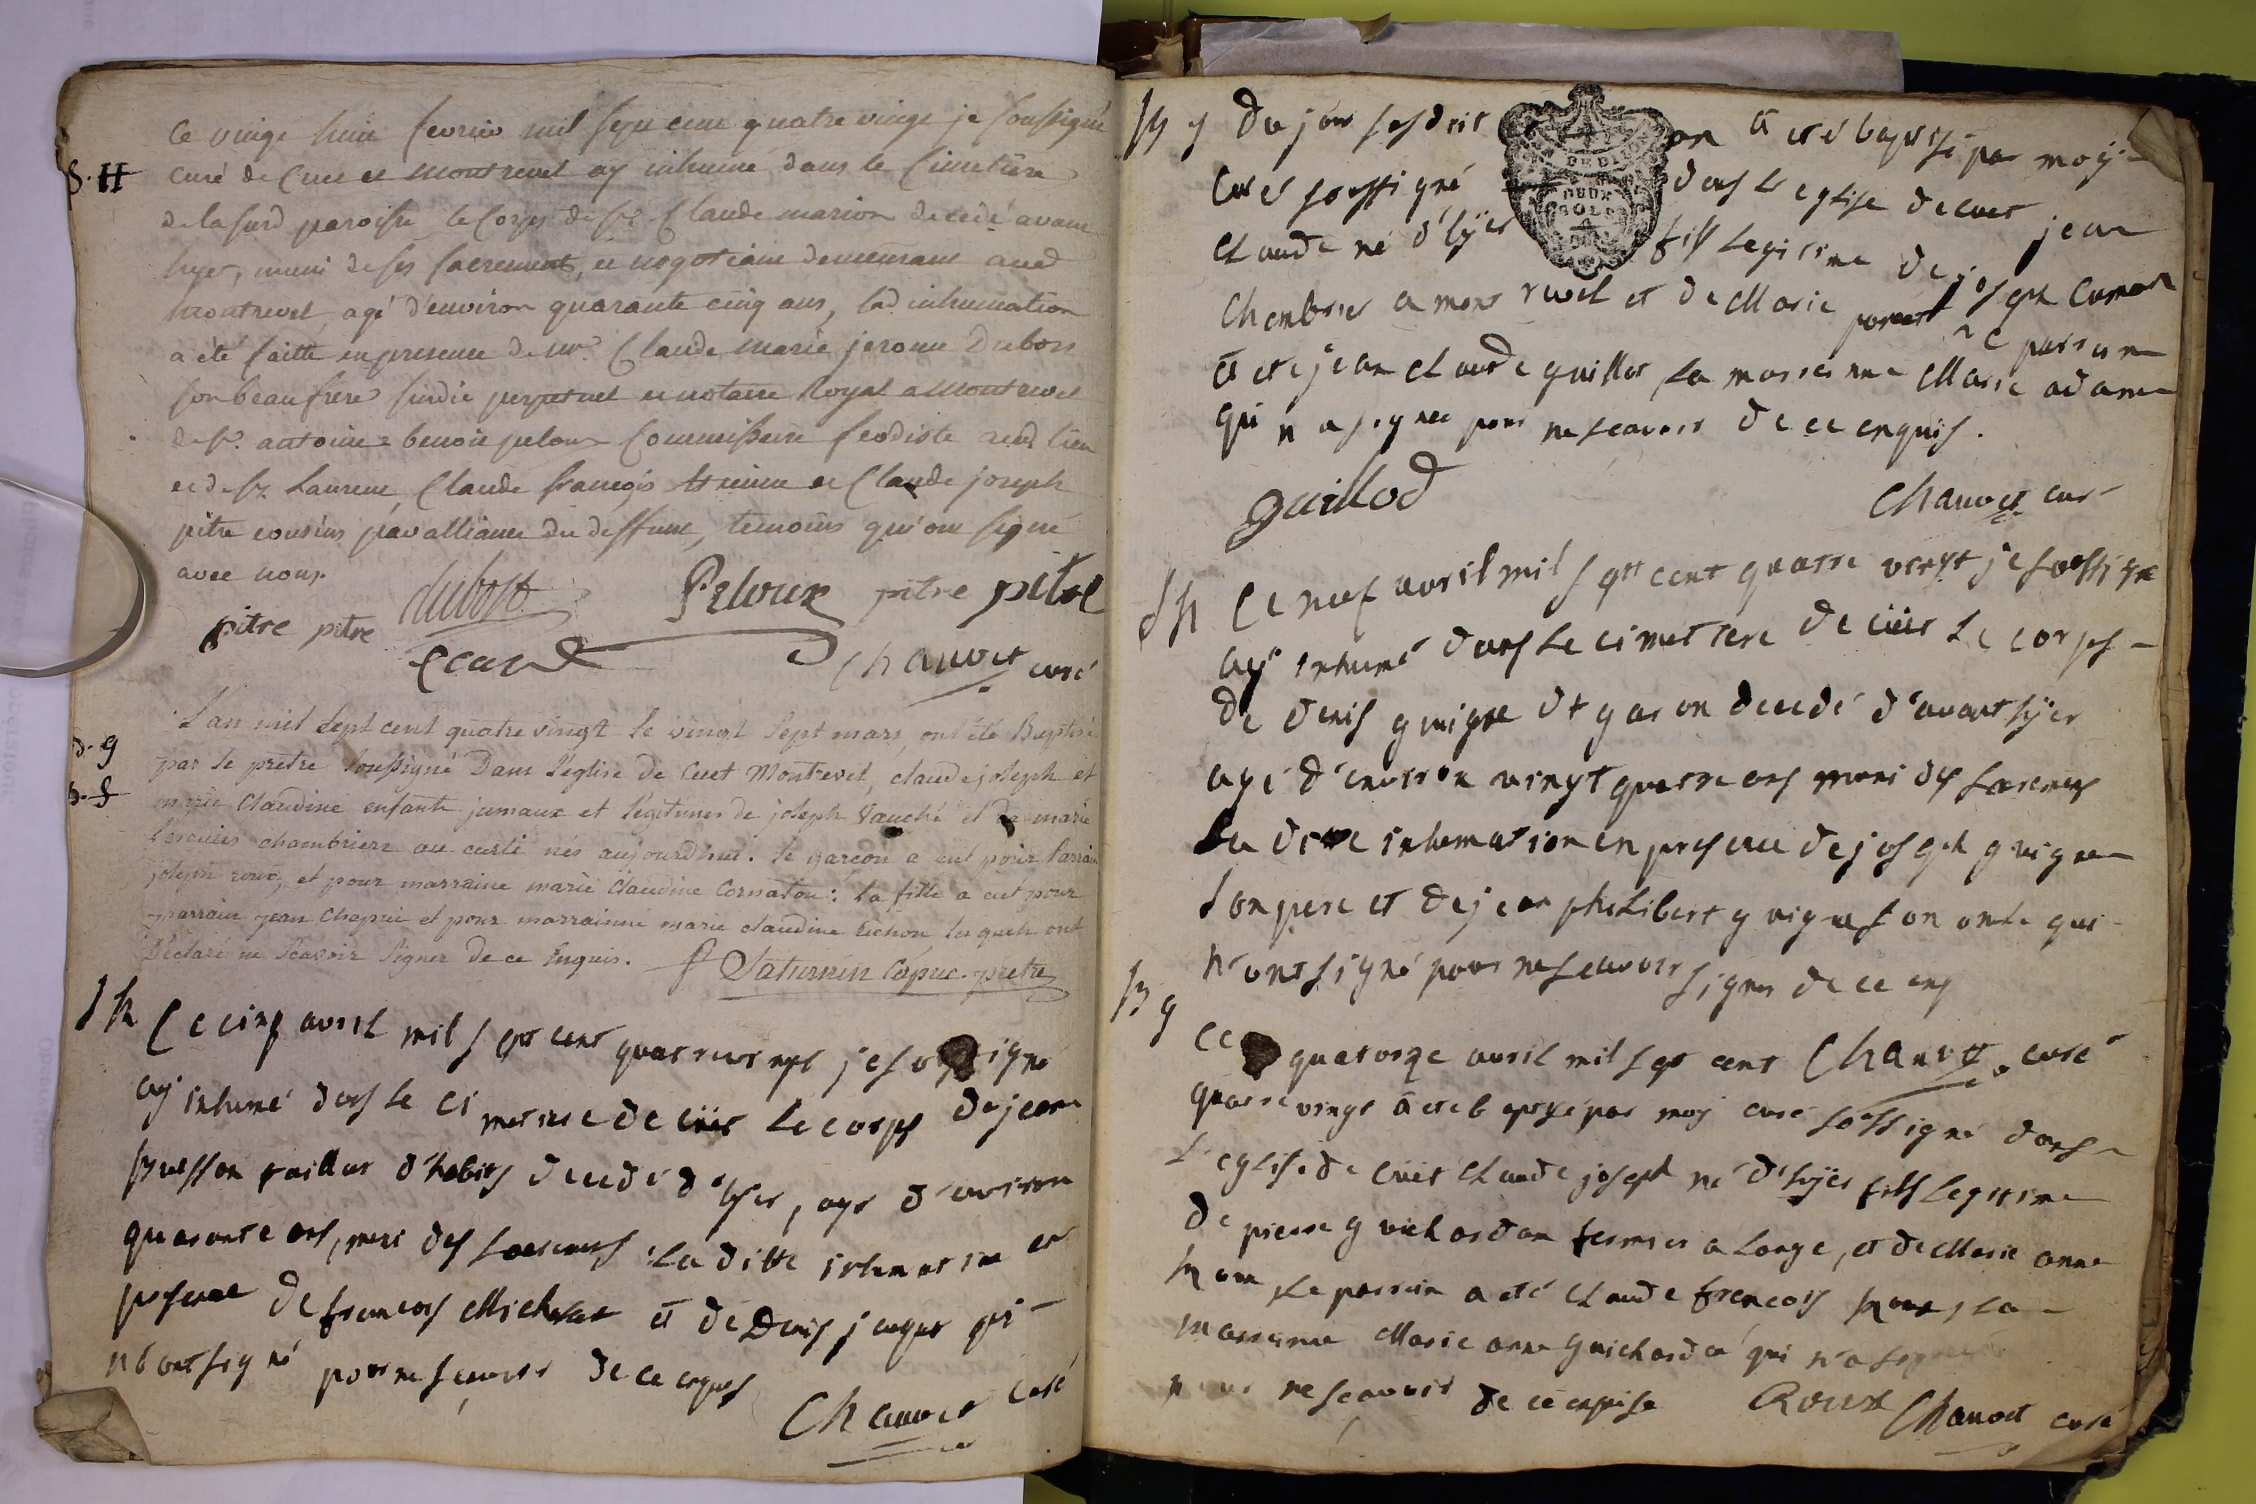 S. H
Ce vingt huit fevrier mil sept cent quatre vingt je soussigné
curé de Cuet et Montrevel ay inhumé dans le Cimetiere
de la susd paroisse le Corps de Sr Claude marion decedé avant
hyer, muni de ses sacrements, et negotiant demeurant aud
montrevel, agé d'environ quarante cinq ans, lad. inhumation
a été faitte en presence de mr. Claude marie jerome Dubost
son beau frere sindic perpetuel et notaire Royal a Montrevel
de Sr. antoine benoit peloux Commissaire feodiste aud lieu
et de Sr Laurent, Claude françois et Claude joseph
pitre cousins par alliance du deffunt, temoins qui ont signé
avec nous.
dubost Peloux pitre pitre
pitre pitre
Chanvet curé
d. g
b. f
L'an mil sept cent quatre vingt le vingt sept mars, ont été Baptisé
par le pretre soussigné Dans l'eglise de Cuet Montrevel, claude joseph et
marie Claudine enfants jumaux et legitimes de joseph Vauché et de marie
chambriere au nés aujourd'hui. le garçon a eut pour Parrain
joseph roux, et pour marraine marie Claudine Cornaton: la fille a eut pour
parrain jean Chapuis et pour marrainne marie claudine Pichon, lesquels ont
Déclaré ne scavoir signer de ce Enquis. f Saturnin Capuc. pretre
S h
Ce cinq avril mil sept cent quatre vingt je soussigné
ay inhumé dans le cimetiere de cüet le corps de jean
buisson tailleur d'habits decedé d'hyer, agé d'environ
quarante ans, muni des sacremens la ditte inhumation en
presence de francois Michelet et de Denis jaquet qui
n'ont signé pour ne scavoir de ce enquis
Chanvet curé
B g
Du jour susdit an a eté baptisé par moy
curé soussigné dans l'eglise de cuet jean
claude né d'hyer fils legitime de joseph
chambrier a montrevel et de Marie le parrain
a eté jean claude guillot la marrainne Marie adam
qui n'a signée pour ne scavoir de ce enquis.
guillod Chanvet curé
S h
Ce neuf avril mil sept cent quatre vingt je soussigné
ay inhumé dans le cimettiere de cüet le corps
de denis guigue garcon decedé d'avant hyer
agé d'environ vingt quattre ans muni des sacremens
la ditte inhumation en presence de joseph guigue
son pere et de jean philibert guigue son oncle qui
n'ont signé pour ne scavoir signer de ce enq
Chanvet curé
B g
Ce quatorze avril mil sept cent
quatre vingt a eté baptisé par moy curé soussigné dans
l'eglise de cüet claude joseph né d'hyer fils legitime
de pierre guichardan fermier a longe, et de Marie anne
roux le parrain a eté claude francois roux, la
marrainne Marie anne guichardan qui n'a signé
pour ne scavoir de ce enquise Roux Chanvet curé